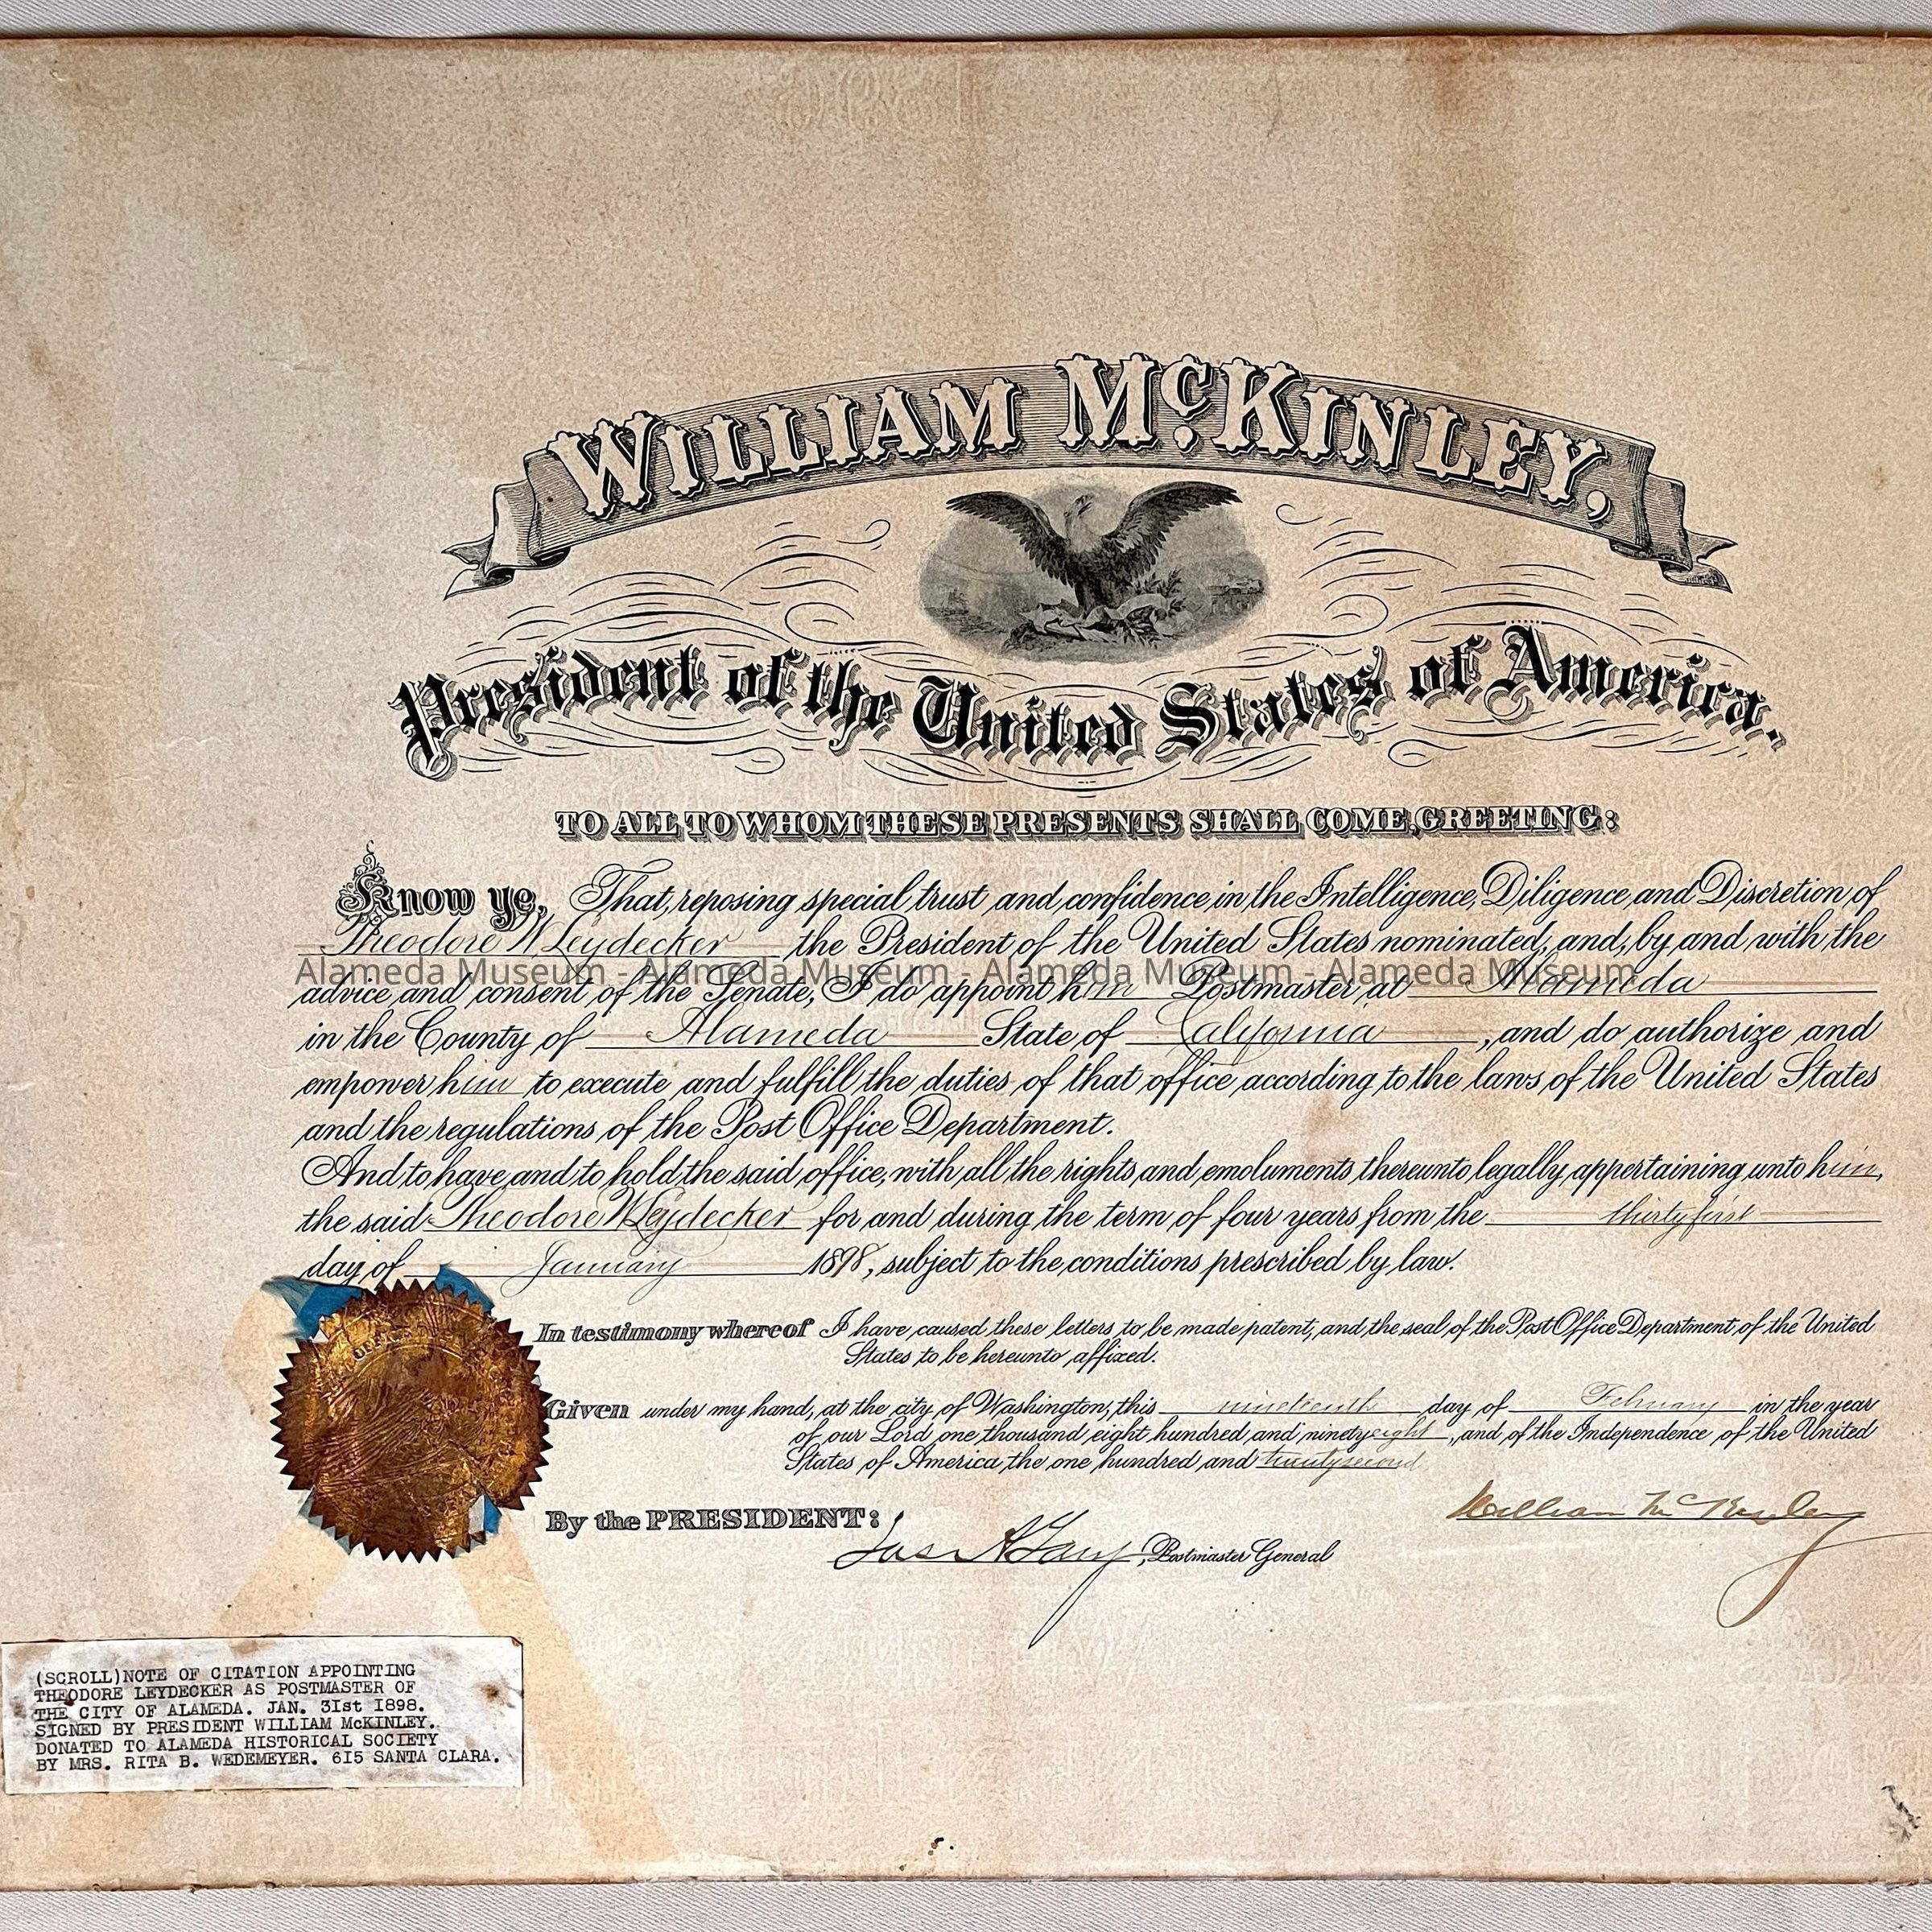 WILLIAM McKINLEY,
President of the United States of America.
TO ALL TO WHOM THESE PRESENTS SHALL COME, GREETING:
Know ye, That, reposing special trust and confidence in the Intelligence, Diligence, and Discretion of
Theodore W Leydecker the President of the United States nominated, and, by and with the
Alameda Museum - Alameda Museum - Alameda Museum - Alameda Museum
advice and consent of the Senate, I do appoint him Postmaster, at Alameda
in the County of Alameda State of California, and do authorize and
empower him to execute and fulfill the duties of that office according to the laws of the United States
and the regulations of the Post Office Department.
And to have and to hold the said office, with all the rights and emoluments thereunto legally appertaining unto him,
the said Theodore W Leydecker for and during the term of four years from the thirtyfirst
day of January 1898, subject to the conditions prescribed by law.
In testimony whereof I have caused these letters to be made patent, and the seal of the Post Office Department of the United
States to be hereunto affixed.
Given under my hand, at the city of Washington, this nineteenth day of February in the year
of our Lord one thousand eight hundred and ninety eight, and of the Independence of the United
States of America the one hundred and twentysecond
William McKinley
By the PRESIDENT:
Jas A Gary, Postmaster General
(SCROLL)NOTE OF CITATION APPOINTING
THEODORE LEYDECKER AS POSTMASTER OF
THE CITY OF ALAMEDA. JAN. 3Ist I898.
SIGNED BY PRESIDENT WILLIAM McKINLEY.
DONATED TO ALAMEDA HISTORICAL SOCIETY
BY MRS. RITA B. WEDEMEYER. 6I5 SANTA CLARA.